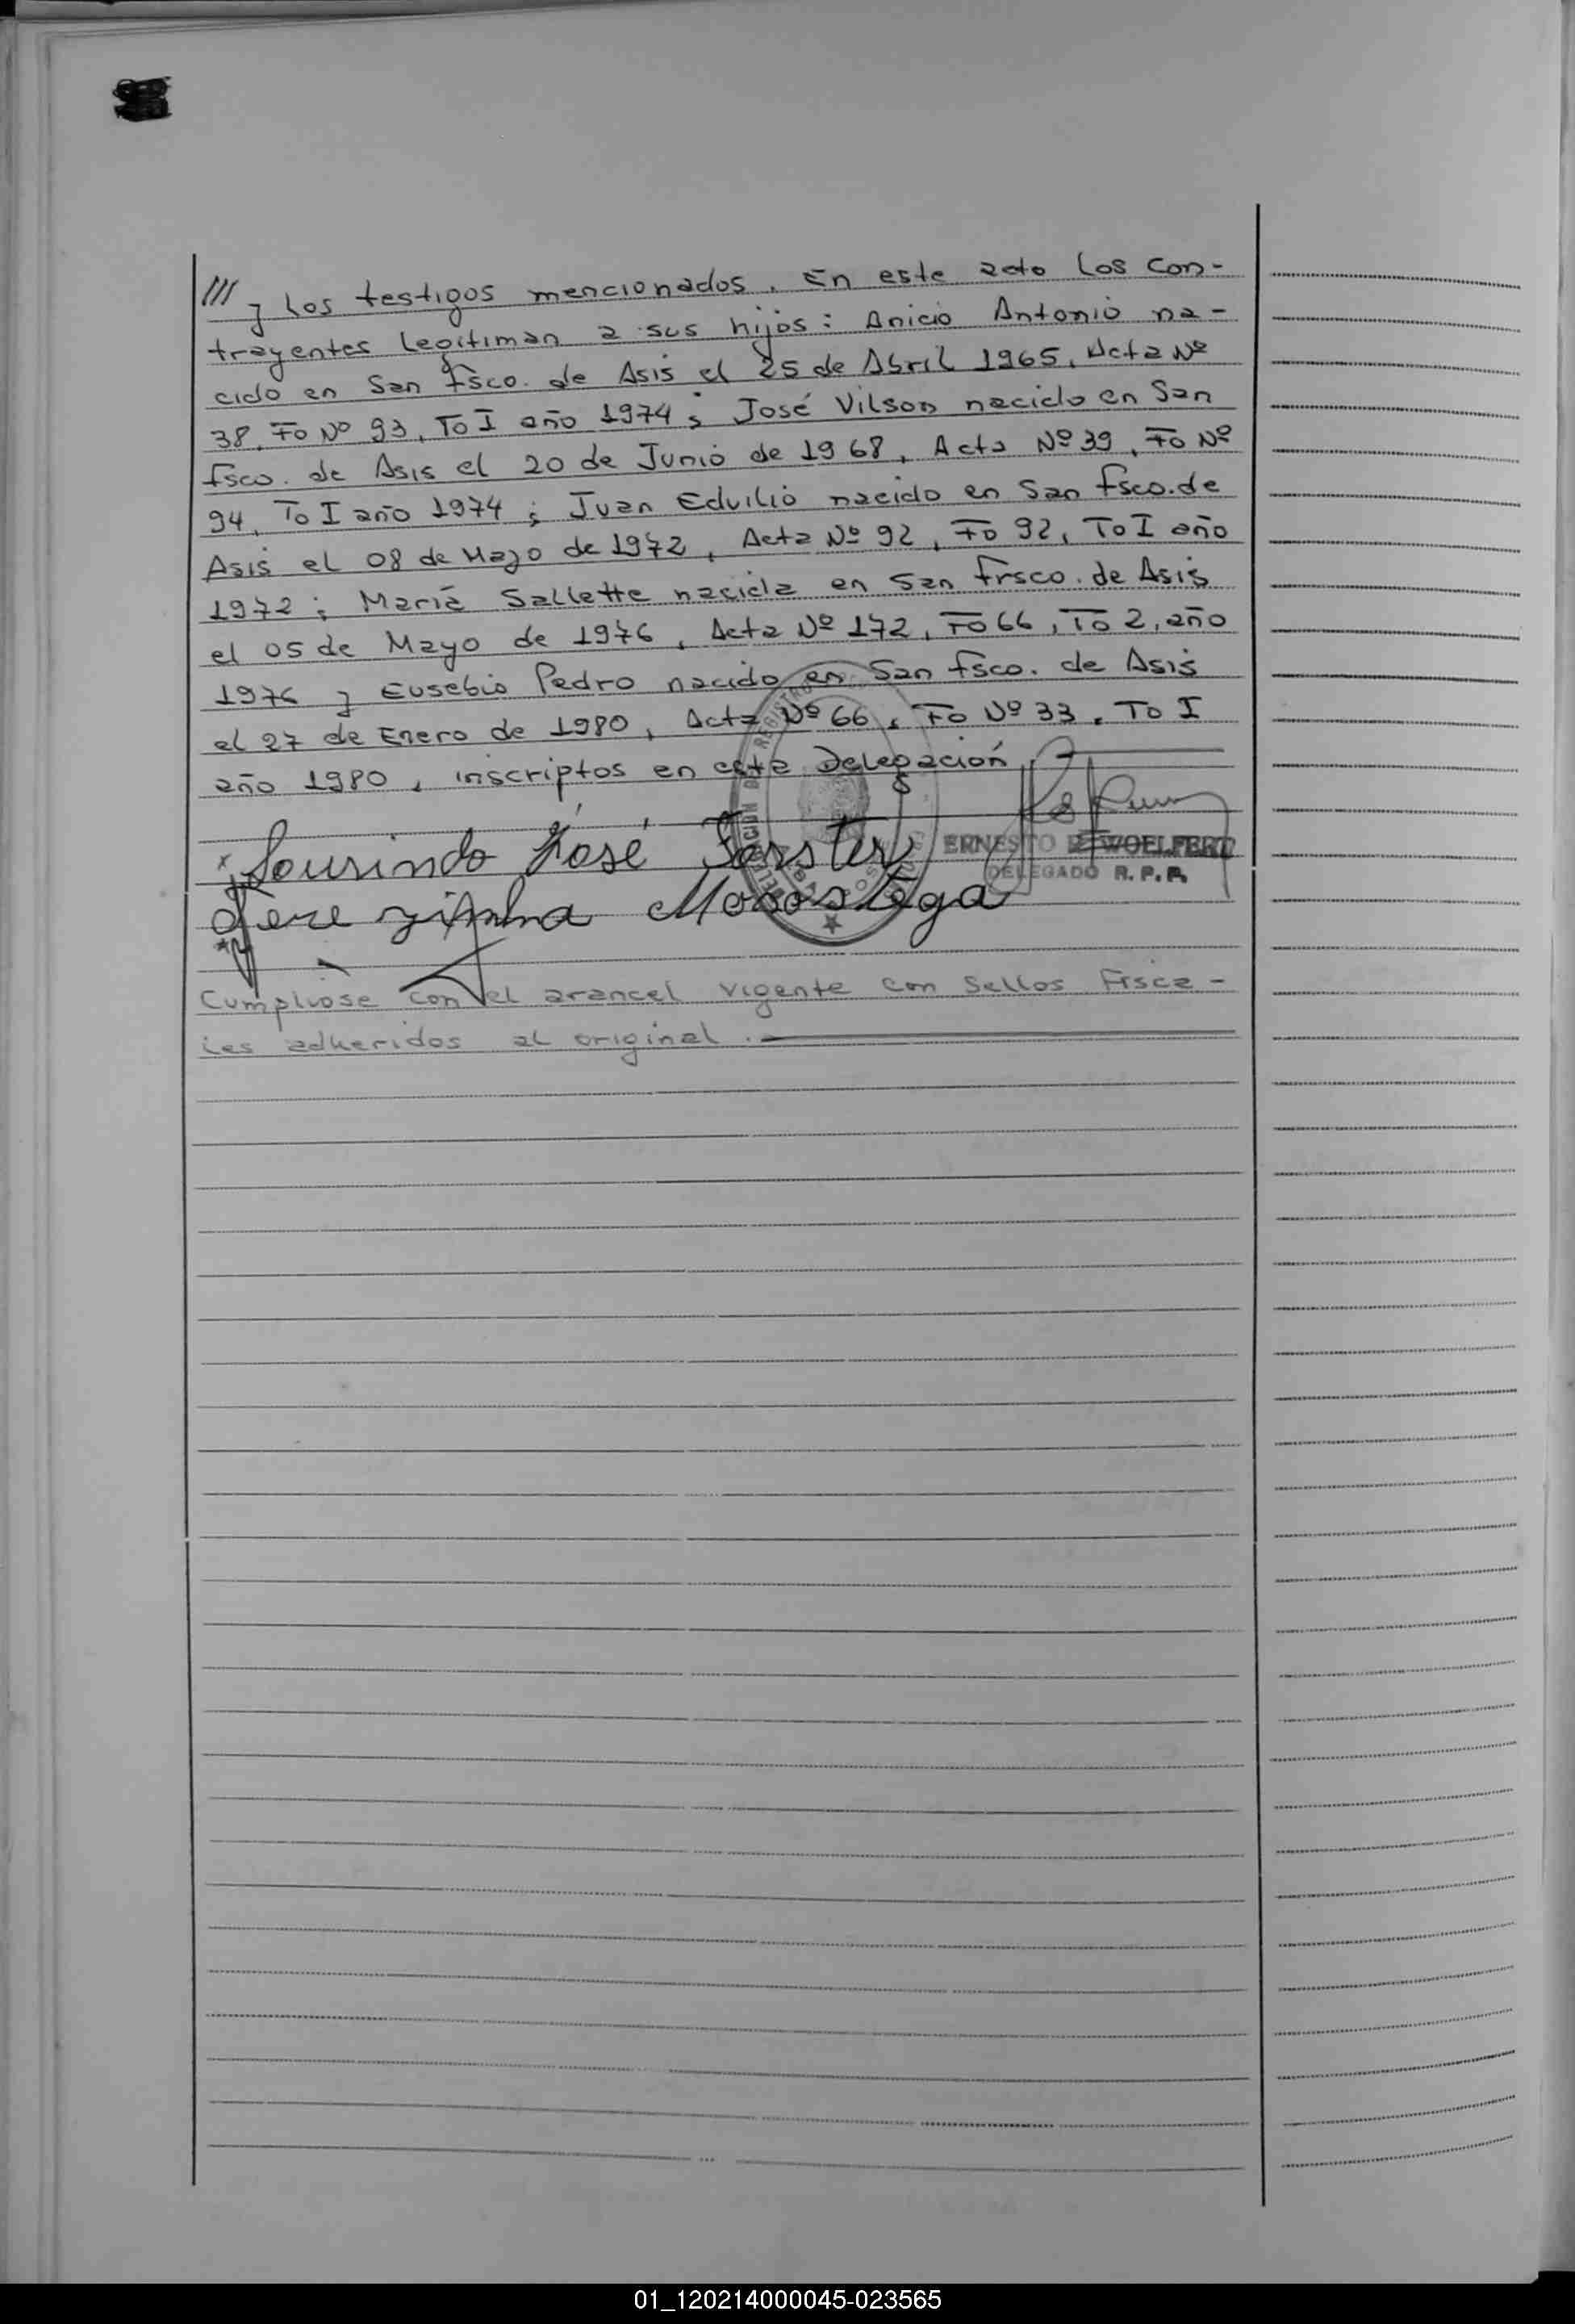 /// y los testigos mencionados. En este acto los con-
trayentes legitiman a sus hijos: Anicio Antonio na-
cido en San Fsco. de Asis el 25 de Abril 1965, Acta Nº
38, Fo Nº 93, To I año 1974; José Vilson nacido en San
Fsco. de Asis el 20 de Junio de 1968, Acta Nº 39, Fo Nº
94, To I año 1974; Juan Edvilio nacido en San Fsco. de
Asis el 08 de Mayo de 1972, Acta Nº 92, Fo 92, To I año
1972; María Sallette nacida en San Frsco. de Asis
el 05 de Mayo de 1976, Acta Nº 172, Fo 66, To 2, año
1976 y Eusebio Pedro nacido en San Fsco. de Asis
el 27 de Enero de 1980, Acta Nº 66, Fo Nº 33, To I
año 1980, inscriptos en esta Delegación
Lourindo José Forster
ERNESTO WOELFERT
DELEGADO R. P. P.
Terezinha
Cumpliose con el arancel vigente con Sellos Fisca-
les adheridos al original.
01_120214000045-023565